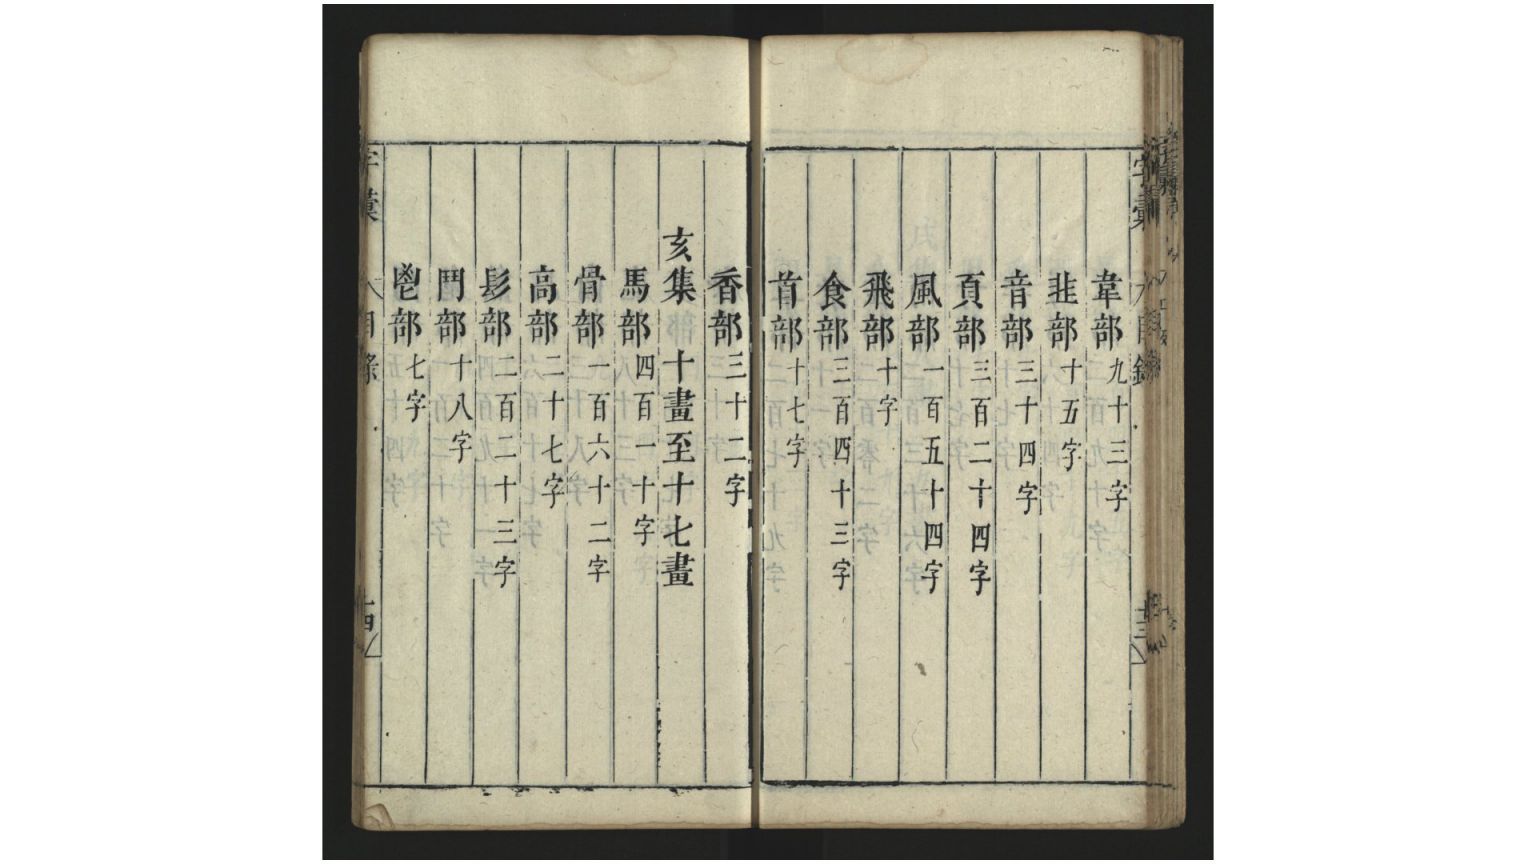 韋部九十三字
韭部十五字
音部三十四字
頁部三百二十四字
風部一百五十四字
飛部十字
食部三百四十三字
首部十七字
香部三十二字
亥集 十畫至十七畫
馬部四百一十字
骨部一百六十二字
高部二十七字
髟部二百二十三字
鬥部十八字
鬯部七字
字彙 目錄 十四